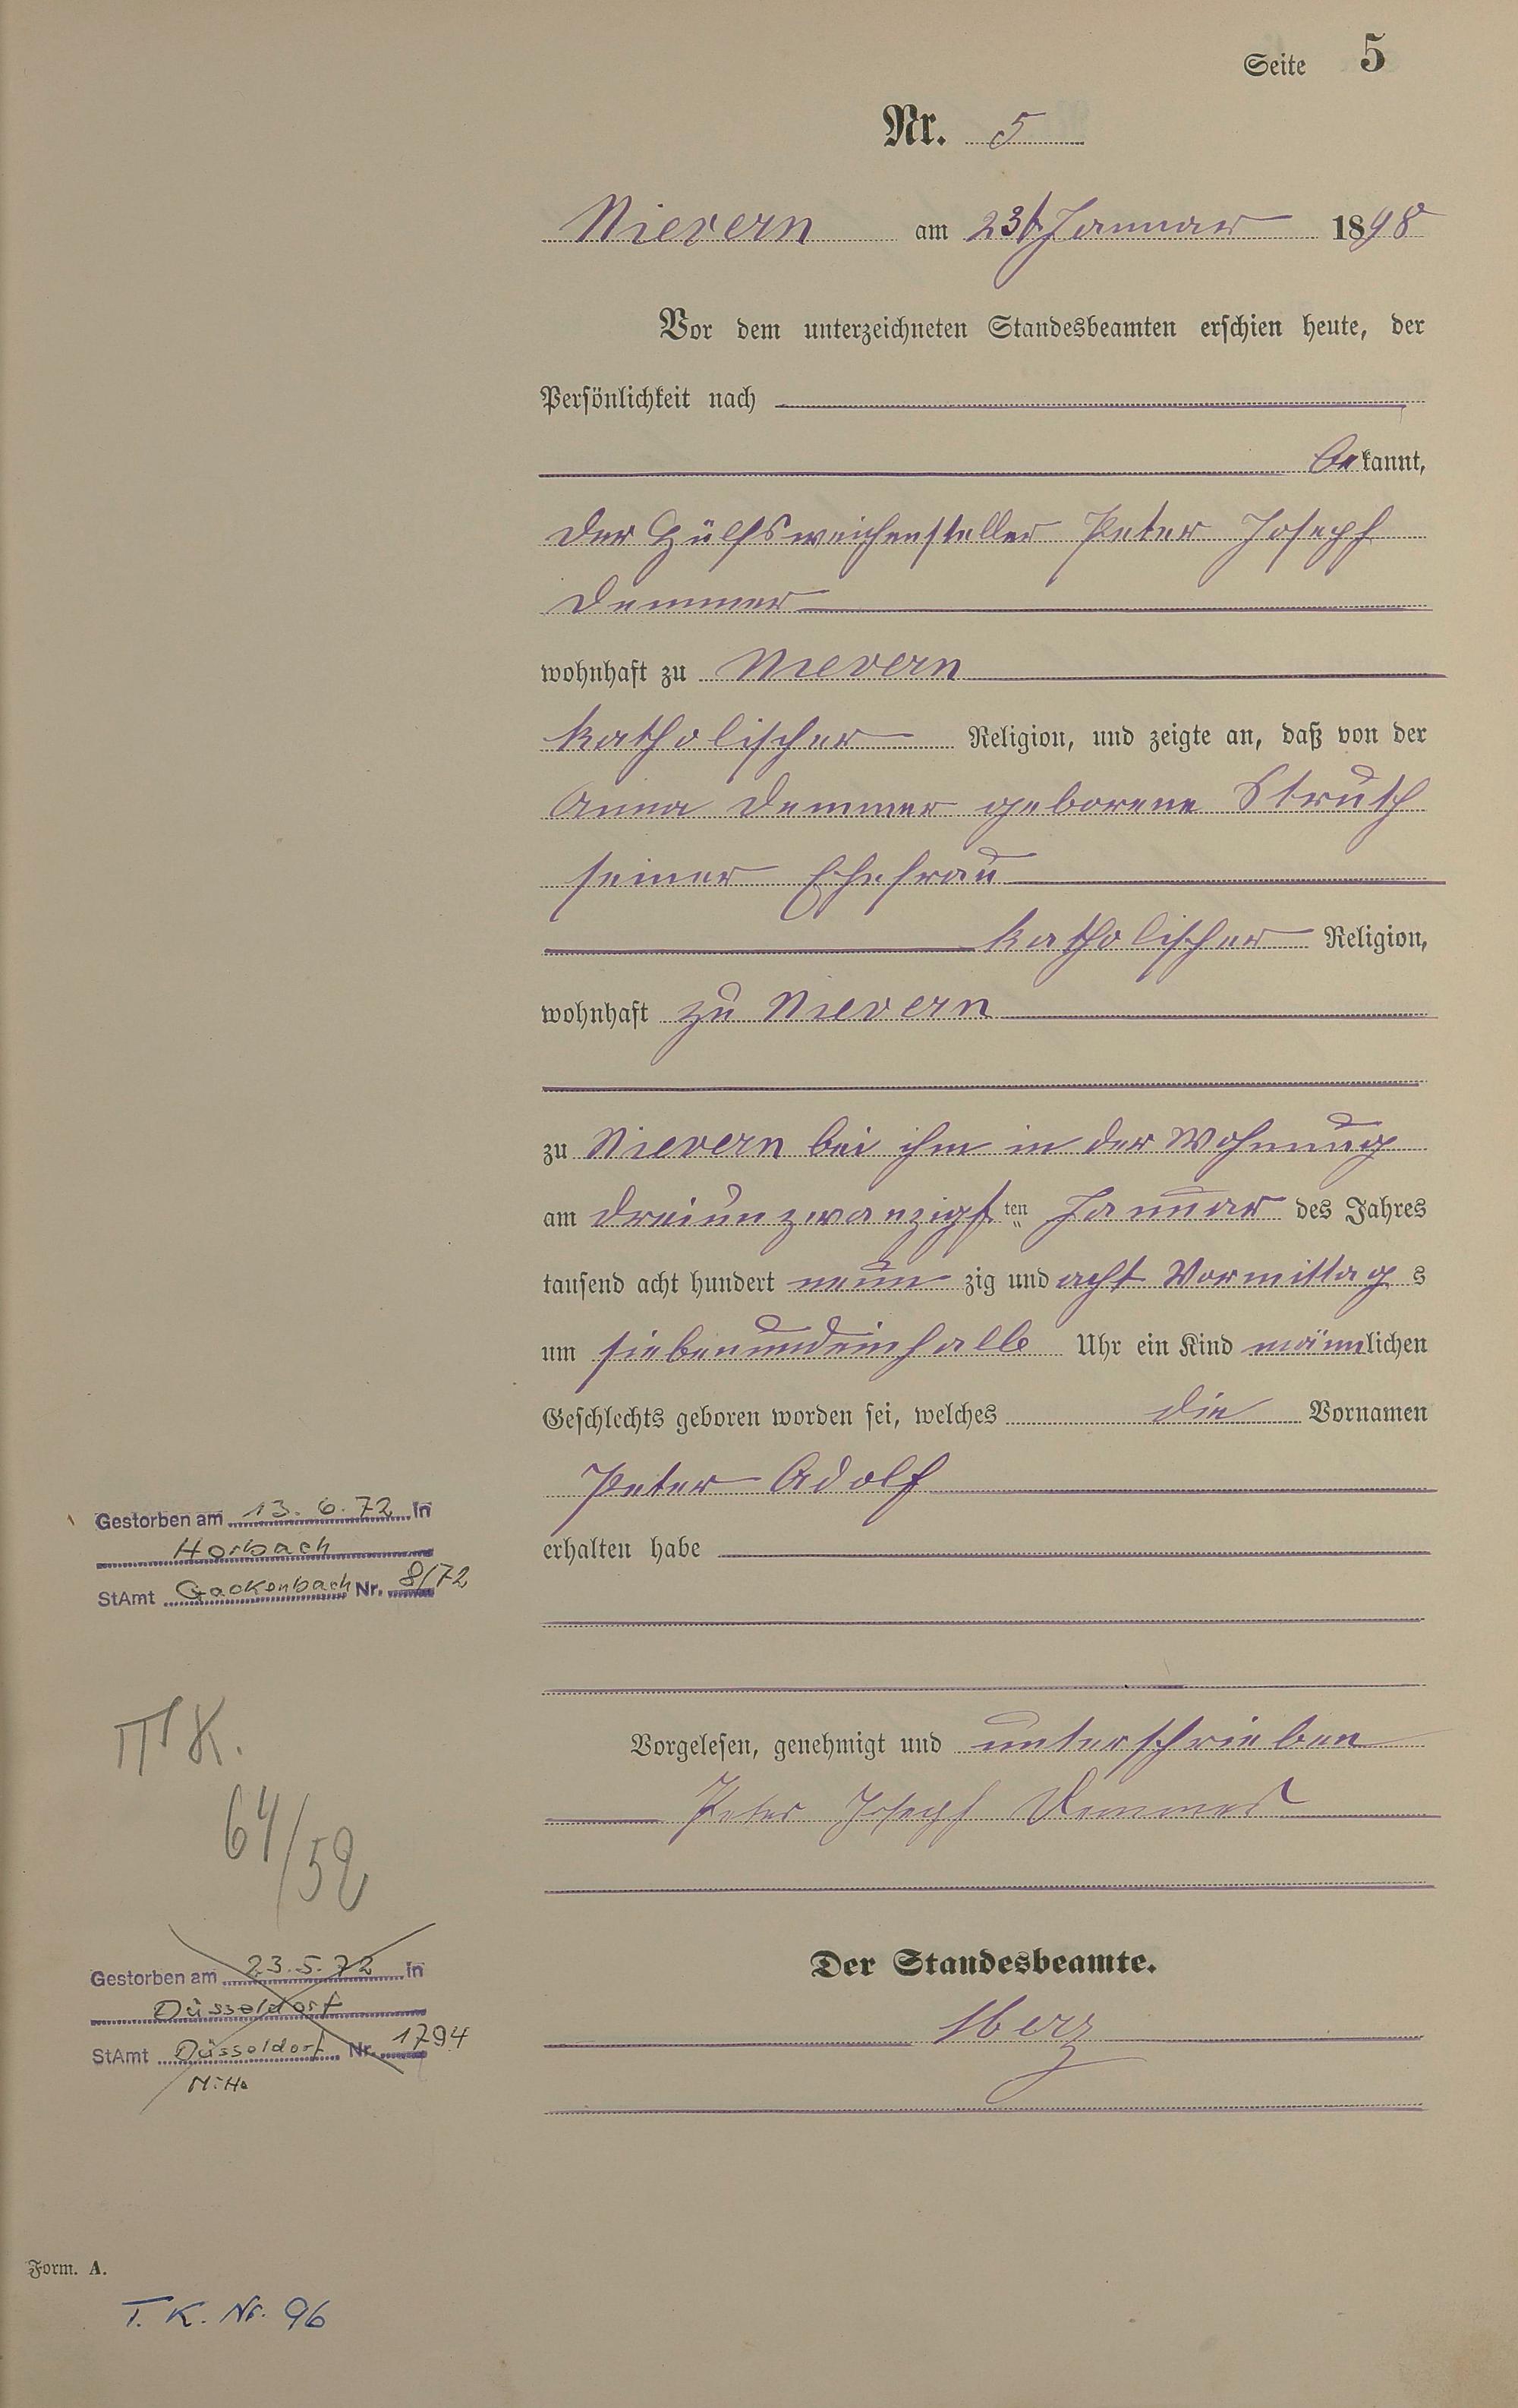 Seite 5
Nr. 5
Nievern am 23t Januar 1898
Vor dem unterzeichneten Standesbeamten erschien heute, der
Persönlichkeit nach
bekannt,
der Hülfsweichensteller Peter Joseph
Demmer
wohnhaft zu Nievern
katholischer Religion, und zeigte an, daß von der
Anna Demmer geborene Struth
seiner Ehefrau
katholischer Religion,
wohnhaft zu Nievern
zu Nievern bei ihm in der Wohnung
am dreiunzwanzigsten Januar des Jahres
tausend acht hundert neunzig und acht Vormittags
um siebenundeinhalb Uhr ein Kind männlichen
Geschlechts geboren worden sei, welches die Vornamen
Peter Adolf
erhalten habe
Vorgelesen, genehmigt und unterschrieben
Peter Joseph Demmer
Der Standesbeamte.
Gestorben am 13.6.72 in
Horbach
StAmt Gackenbach Nr. 8/72
64/52
Gestorben am 23.5.72 in
Düsseldorf
StAmt Düsseldorf Nr. 1794
Mitte
Form. A.
T. K. Nr. 96